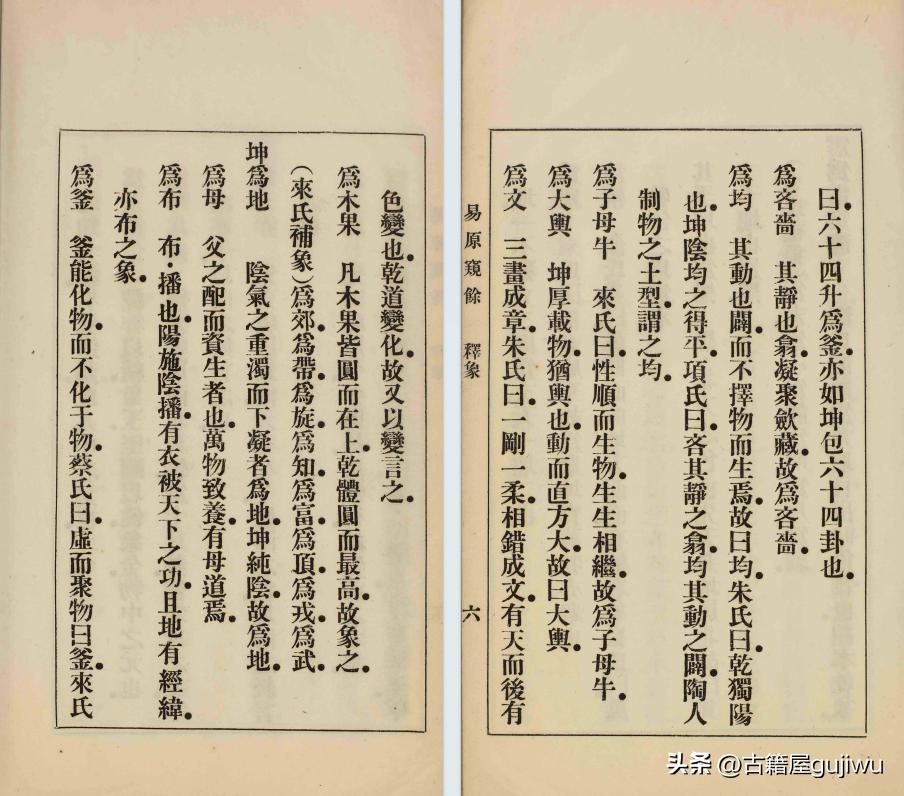 色變也乾道變化故又以變言之
為木果　凡木果皆圓而在上乾體圓而最高故象之
（來氏補象）為郊為帶為旋為知為富為頂為戎為武
坤為地　陰氣之重濁而下凝者為地坤純陰故為地
為母　父之配而資生者也萬物致養有母道焉
為布　布播也陽施陰播有衣被天下之功且地有經緯
亦布之象
為釜　釜能化物而不化于物蔡氏曰虛而聚物曰釜來氏
易原窺餘　釋象　六
曰六十四升為釜亦如坤包六十四卦也
為吝嗇　其靜也翕凝聚歛藏故為吝嗇
為均　其動也闢而不擇物而生焉故曰均朱氏曰乾獨陽
也坤陰均之得平項氏曰吝其靜之翕均其動之闢陶人
制物之土型謂之均
為子母牛　來氏曰性順而生物生生相繼故為子母牛
為大輿　坤厚載物猶輿也動而直方大故曰大輿
為文　三畫成章朱氏曰一剛一柔相錯成文有天而後有
头条 @古籍屋gujiwu